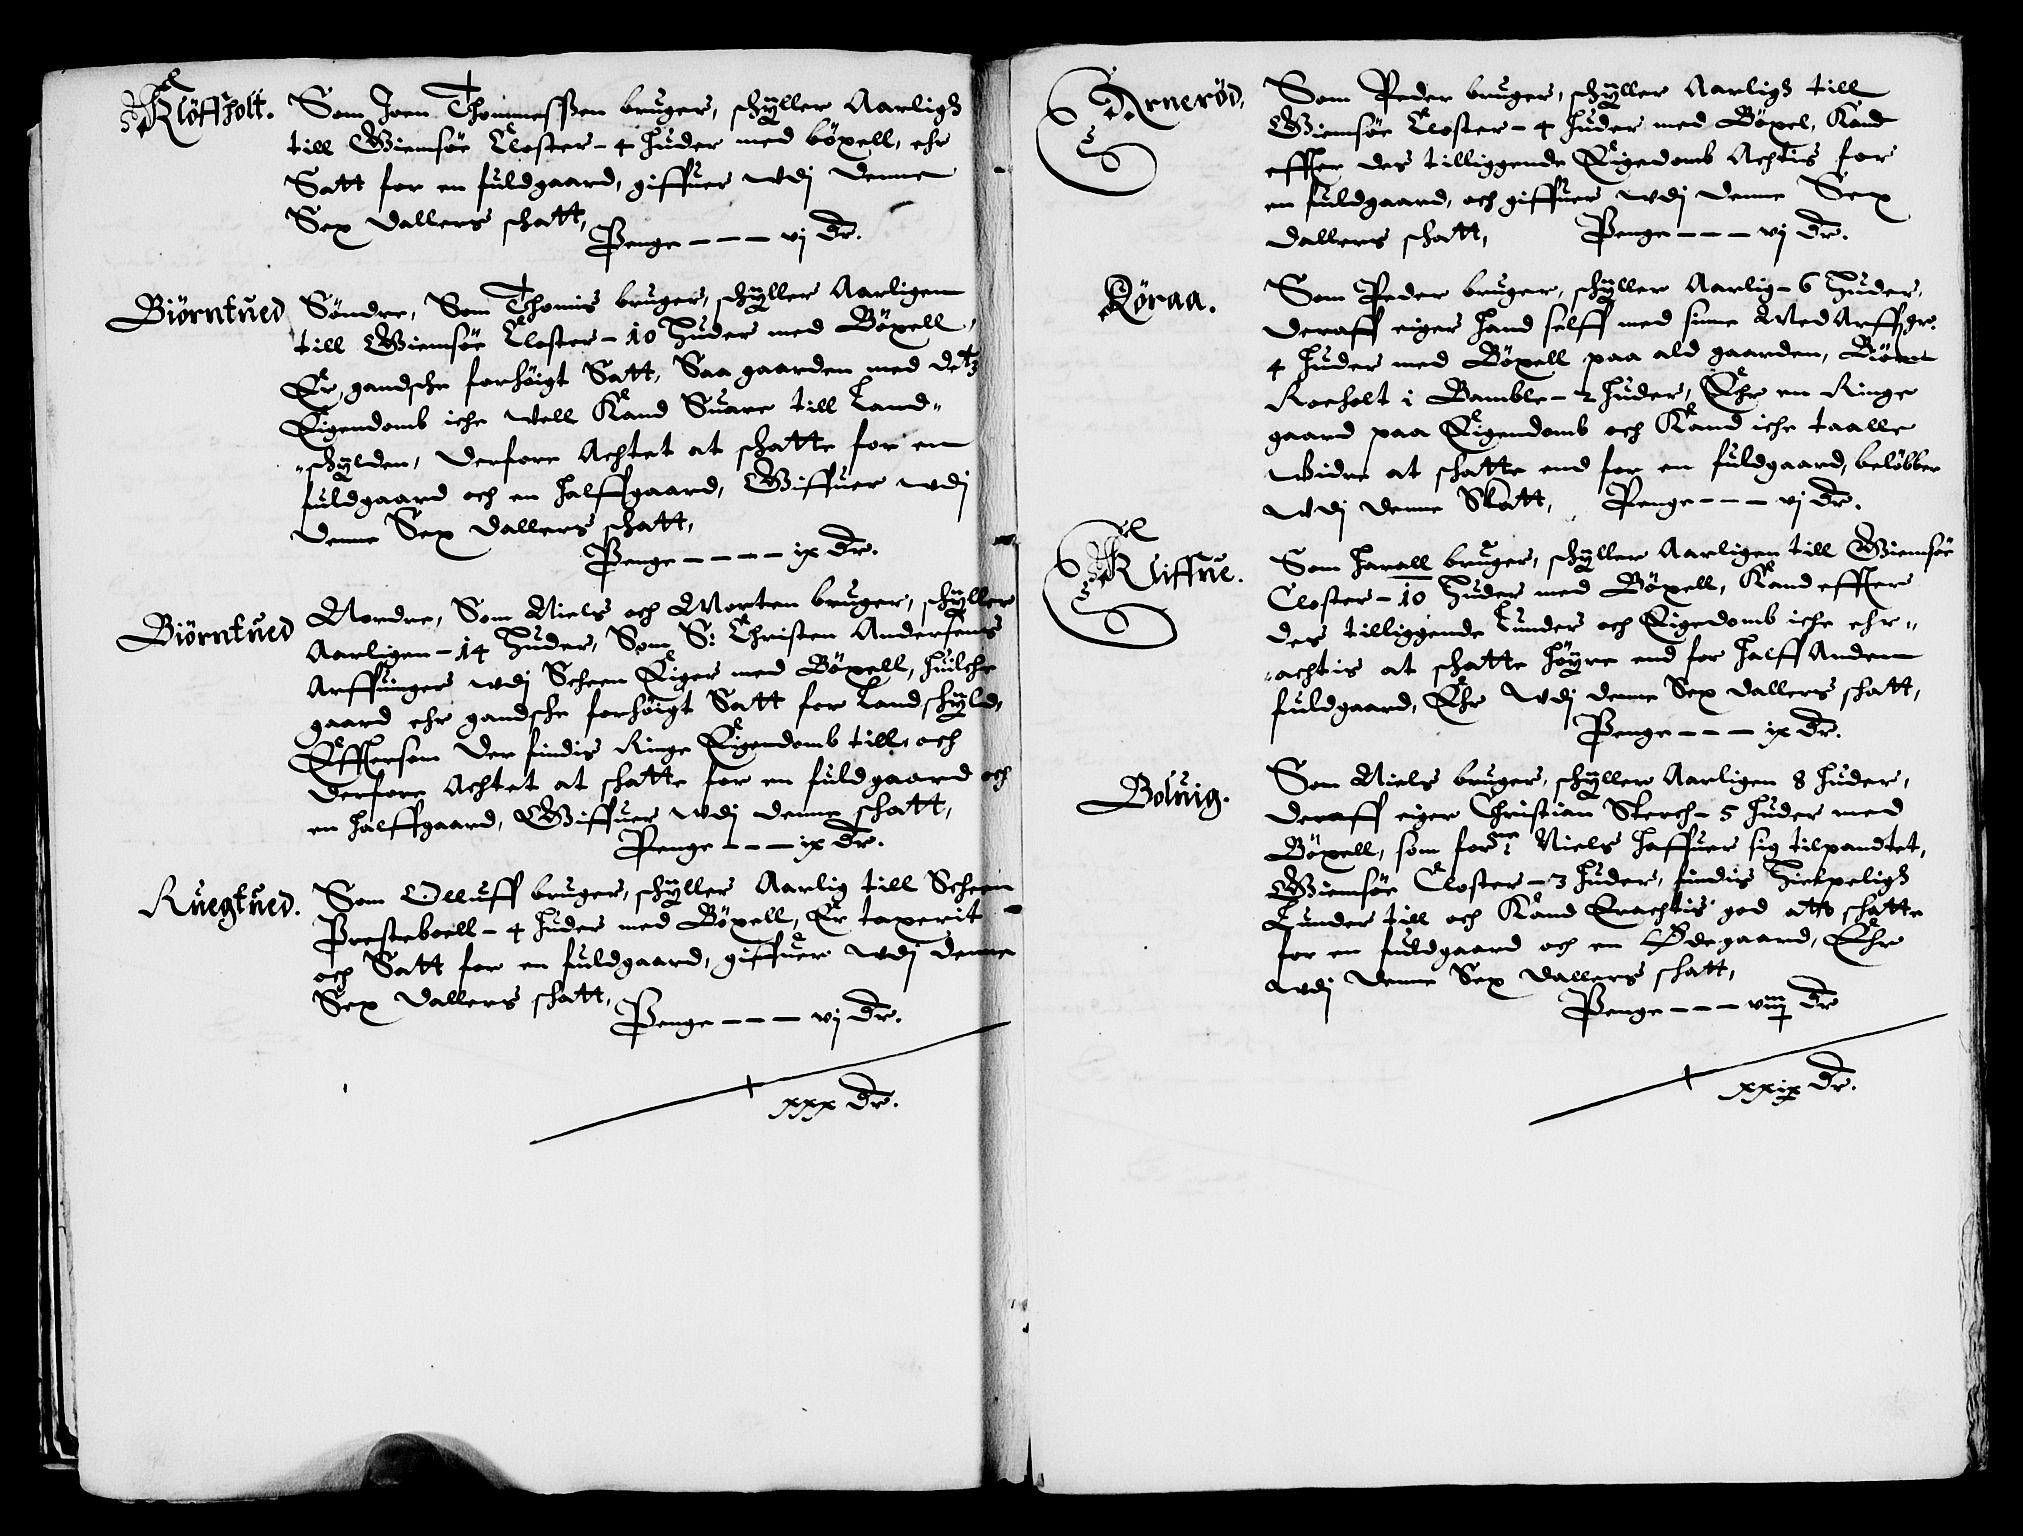 Klöffholt. Som Joen Thommesßen bruger, schÿller Aarligh
till Giemsöe Closter - 4 huder med böxell, ehr
Satt for en fuldgaard, giffuer wdj denne
Sex dallers schatt,
Penge - - - vj dr.
Biörntued Söndre, Som Thomis bruger, schÿller Aarligen
till Giemsöe Closter - 10 Huder med Böxell,
Er gandsche forhöigt Satt, Saa gaarden med detz
Eigendomb iche well Kand Suare till Land-
schÿlden, derfore Achtet at schatte for en
fuldgaard och en halffgaard, Giffuer wdj
denne Sex dallers schatt,
Penge - - - - ix dr.
Biörntued Nordre, Som Niels och Morten bruger, schÿller
Aarligen - 14 Huder, Som S: Christen Andersens
Arffuinger wdj Scheen Eiger med Böxell, huilche
gaard ehr gandsche forhöigt Satt for Landschÿld,
Effterson der findis Ringe Eigendomb till, och
derfore Achtet at schatte for en fuldgaard och
en halffgaard, Giffuer wdj denne schatt,
Penge - - - ix dr.
Ruegtued. Som Olluff bruger, schÿller Aarlig till Scheen
Presteboell - 4 huder med Böxell, Er taxerit
och Satt for en fuldgaard, giffuer wdj denne
Sex dallers schatt,
Penge - - - vj dr.
xxx dr.
Arneröd, Som Peder bruger, schÿller Aarligh till
Giemsöe Closter - 4 huder med Böxel, Kand
effter des tilliggende Eigedomb Achtis for
en fuldgaard, och giffuer wdj denne Sex
dallers schatt, Penge - - - vj dr.
Röraa. Som Peder bruger, schÿller Aarlig - 6 Huder,
deraff eiger hand selff med sinne Med Arffgr.
4 huder med Böxell paa ald gaarden, Biörn
Roeholt i Bamble - 2 huder, Ehr en Ringe
gaard paa Eigendomb och Kand iche taalle
widre at schatte end for en fuldgaard, belöbber
wdj denne Skatt, Penge - - - vj dr.
Kliffue. Som Harall bruger, schÿller Aarligen till Giemsöe
Closter - 10 Huder med Böxell, Kand effter
des tilliggende Lunder och Eigedomb iche ehr-
achtis at schatte höÿre end for halff Anden
fuldgaard, Ehr wdj denne Sex dallers schatt,
Penge - - - ix dr.
Boluig. Som Niels bruger, schÿller Aarligen 8 huder,
deraff eiger Christian Sterch - 5 huder med
Böxell, som forne Niels haffuer sig tilpandtet,
Giemsöe Closter - 3 huder, findis Zierpeligh
Lunder till och Kand Erachtis god att schatte
for en fuldgaard och en Ödegaard, Ehr
wdj denne Sex dallers schatt,
Penge - - - viij dr
xxix dr.